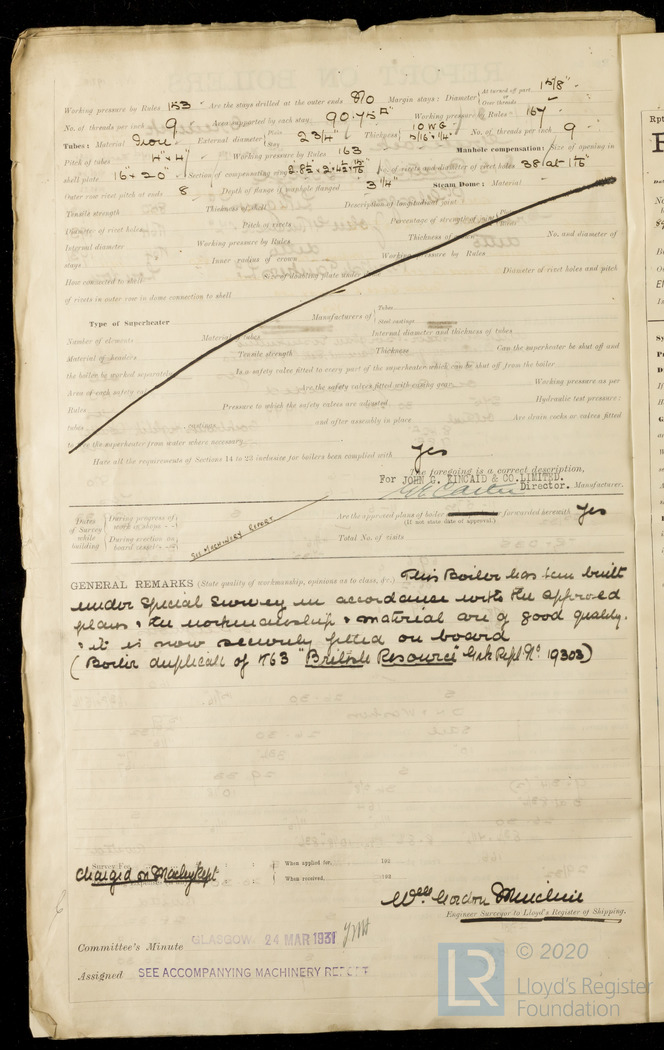 Working pressure by Rules 153 Are the stays drilled at the outer ends Margin stays: Diameter { At turned off part, or Over threads 1 5/8"
No. of threads per inch 9 Area supported by each stay 90.75 Working pressure by Rules 167
Tubes: Material Iron External diameter { Plain Stay 2 3/4" Thickness { 10 WG 5/16 + 1/4" No. of threads per inch 9
Pitch of tubes 4" + 4" Working pressure by Rules 163 Manhole compensation: Size of opening in
shell plate 16" + 20" Section of compensating No. of rivets and diameter of rivet holes 38 at
Outer row rivet pitch at ends 8 Depth of flange if manhole flanged 3 1/4" Steam Dome: Material
Tensile strength Thickness of shell Description of longitudinal joint
Diameter of rivet holes Pitch of rivets Percentage of strength of joint { Plate Rivets
Internal diameter Working pressure by Rules Thickness of crown No. and diameter of
stays Inner radius of crown Working pressure by Rules
How connected to shell Size of doubling plate under dome Diameter of rivet holes and pitch
of rivets in outer row in dome connection to shell
Type of Superheater Manufacturers of { Tubes Steel castings
Number of elements Material of tubes Internal diameter and thickness of tubes
Material of headers Tensile strength Thickness Can the superheater be shut off and
the boiler be worked separately Is a safety valve fitted to every part of the superheater which can be shut off from the boiler
Area of each safety valve Are the safety valves fitted with easing gear Working pressure as per
Rules Pressure to which the safety valves are adjusted Hydraulic test pressure:
tubes castings and after assembly in place Are drain cocks or valves fitted
to free the superheater from water where necessary
Have all the requirements of Sections 14 to 23 inclusive for boilers been complied with Yes
The foregoing is a correct description,
For JOHN G. KINCAID & CO. LIMITED.
Director. Manufacturer.
Dates of Survey while building { During progress of work in shops - - During erection on board vessel - - - } See Machinery Report
Are the approved plans of boiler forwarded herewith Yes
(If not state date of approval.)
Total No. of visits
GENERAL REMARKS (State quality of workmanship, opinions as to class, &c.) This Boiler has been built
under Special Survey in accordance with the approved
plans, the workmanship & material are of good quality.
& it is now securely fitted on board
(Boiler duplicate of "British Resource" Grk Rept No. 19303)
Survey Fee When applied for, 192
Charged on Machy Rept
When received, 192
Wm Gordon
Engineer Surveyor to Lloyd's Register of Shipping.
Committee's Minute GLASGOW 24 MAR 1931
Assigned SEE ACCOMPANYING MACHINERY REPORT
Rpt
LR © 2020
Lloyd's Register
Foundation